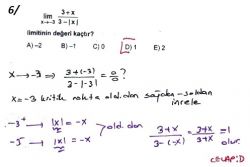 6/
lim 3+x / 3-|x|
x→-3
limitinin değeri kaçtır?
A) -2 B) -1 C) 0 D) 1 E) 2
x → -3 ⇒ 3+(-3) / 3-|-3| = 0/0 ?
x = -3 kritik nokta old.dan sağdan-soldan
incele
-3⁺ → |x| = -x
-3⁻ → |x| = -x
old.dan
3+x / 3-(-x) = 3+x / 3+x = 1
olur.
CEVAP: D